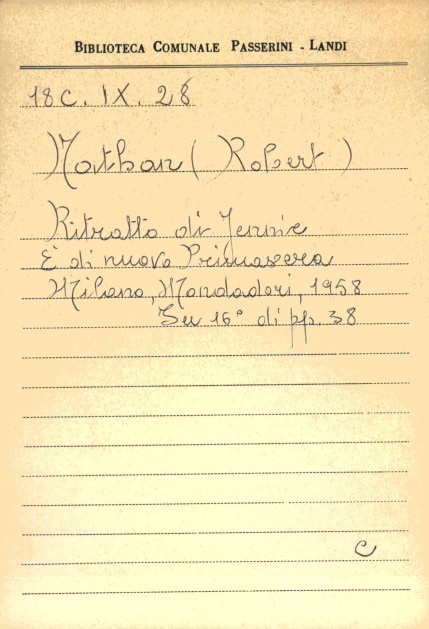 BIBLIOTECA COMUNALE PASSERINI - LANDI
18C. IX. 28
Nathan (Robert)
Ritratto di Jennie
È di nuovo Primavera
Milano, Mondadori, 1958
In 16° di pp. 38
C